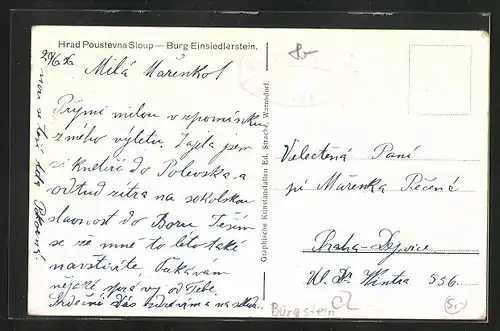 Hrad Poustevna Sloup — Burg Einsiedlerstein.
Milá Mařenko!
Přijmi milou vzpomínku
z mého výletu. Zajela jsem
si k neteři do Polevska a
odtud zítra na sokolskou
slavnost do Boru. Těším
se že mne to léto také
navštívíte, čekávám
nějaké zprávy od Tebe.
Srdečně Vás zdravím a na shled.
Graphische Kunstanstalten Ed. Strache, Warnsdorf.
Velectěná Paní
pí Mařenka Pěčená
Praha-Dejvice
Ul. Dr. Wintra 556.
Bürgstein
CZ
5,-